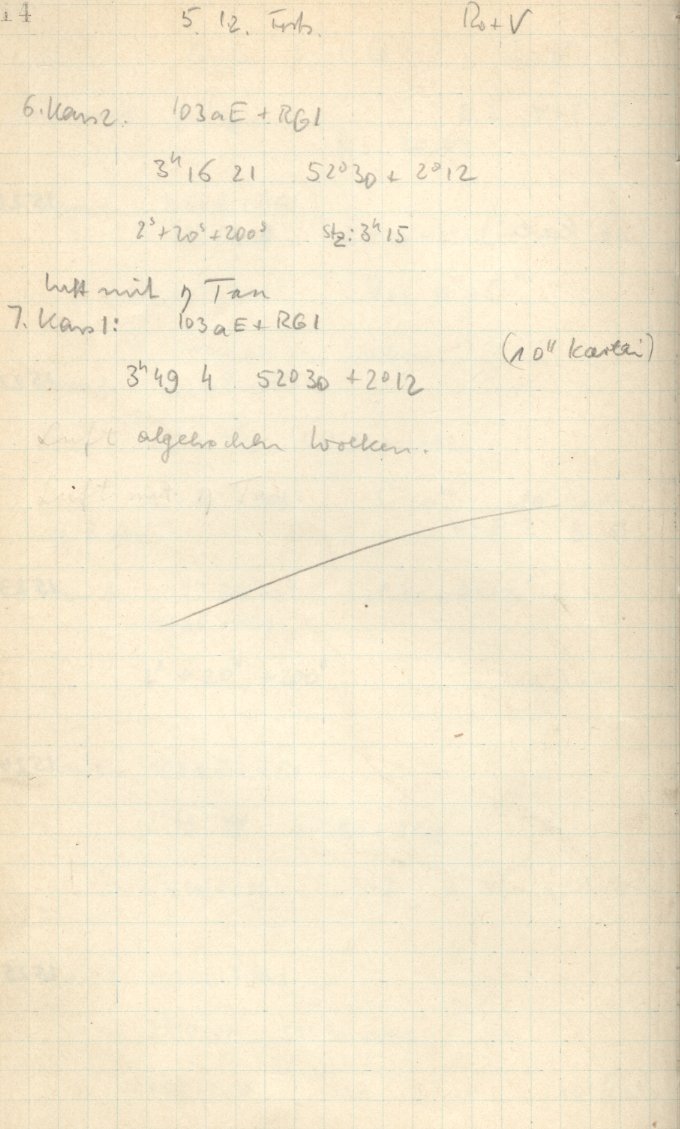 14 5. 12. Forts. Ro+V
6. Kass 2. 103aE + RG1
3ʰ 16 21 52°30 + 2°12
2ˢ+20ˢ+200ˢ Stz: 3ʰ15
Luft mit η Tau
7. Kass 1: 103aE + RG1
(10" Kartei)
3ʰ 49 4 52030 + 2°12
Luft abgebrochen Wolken.
Luft mit η Tau